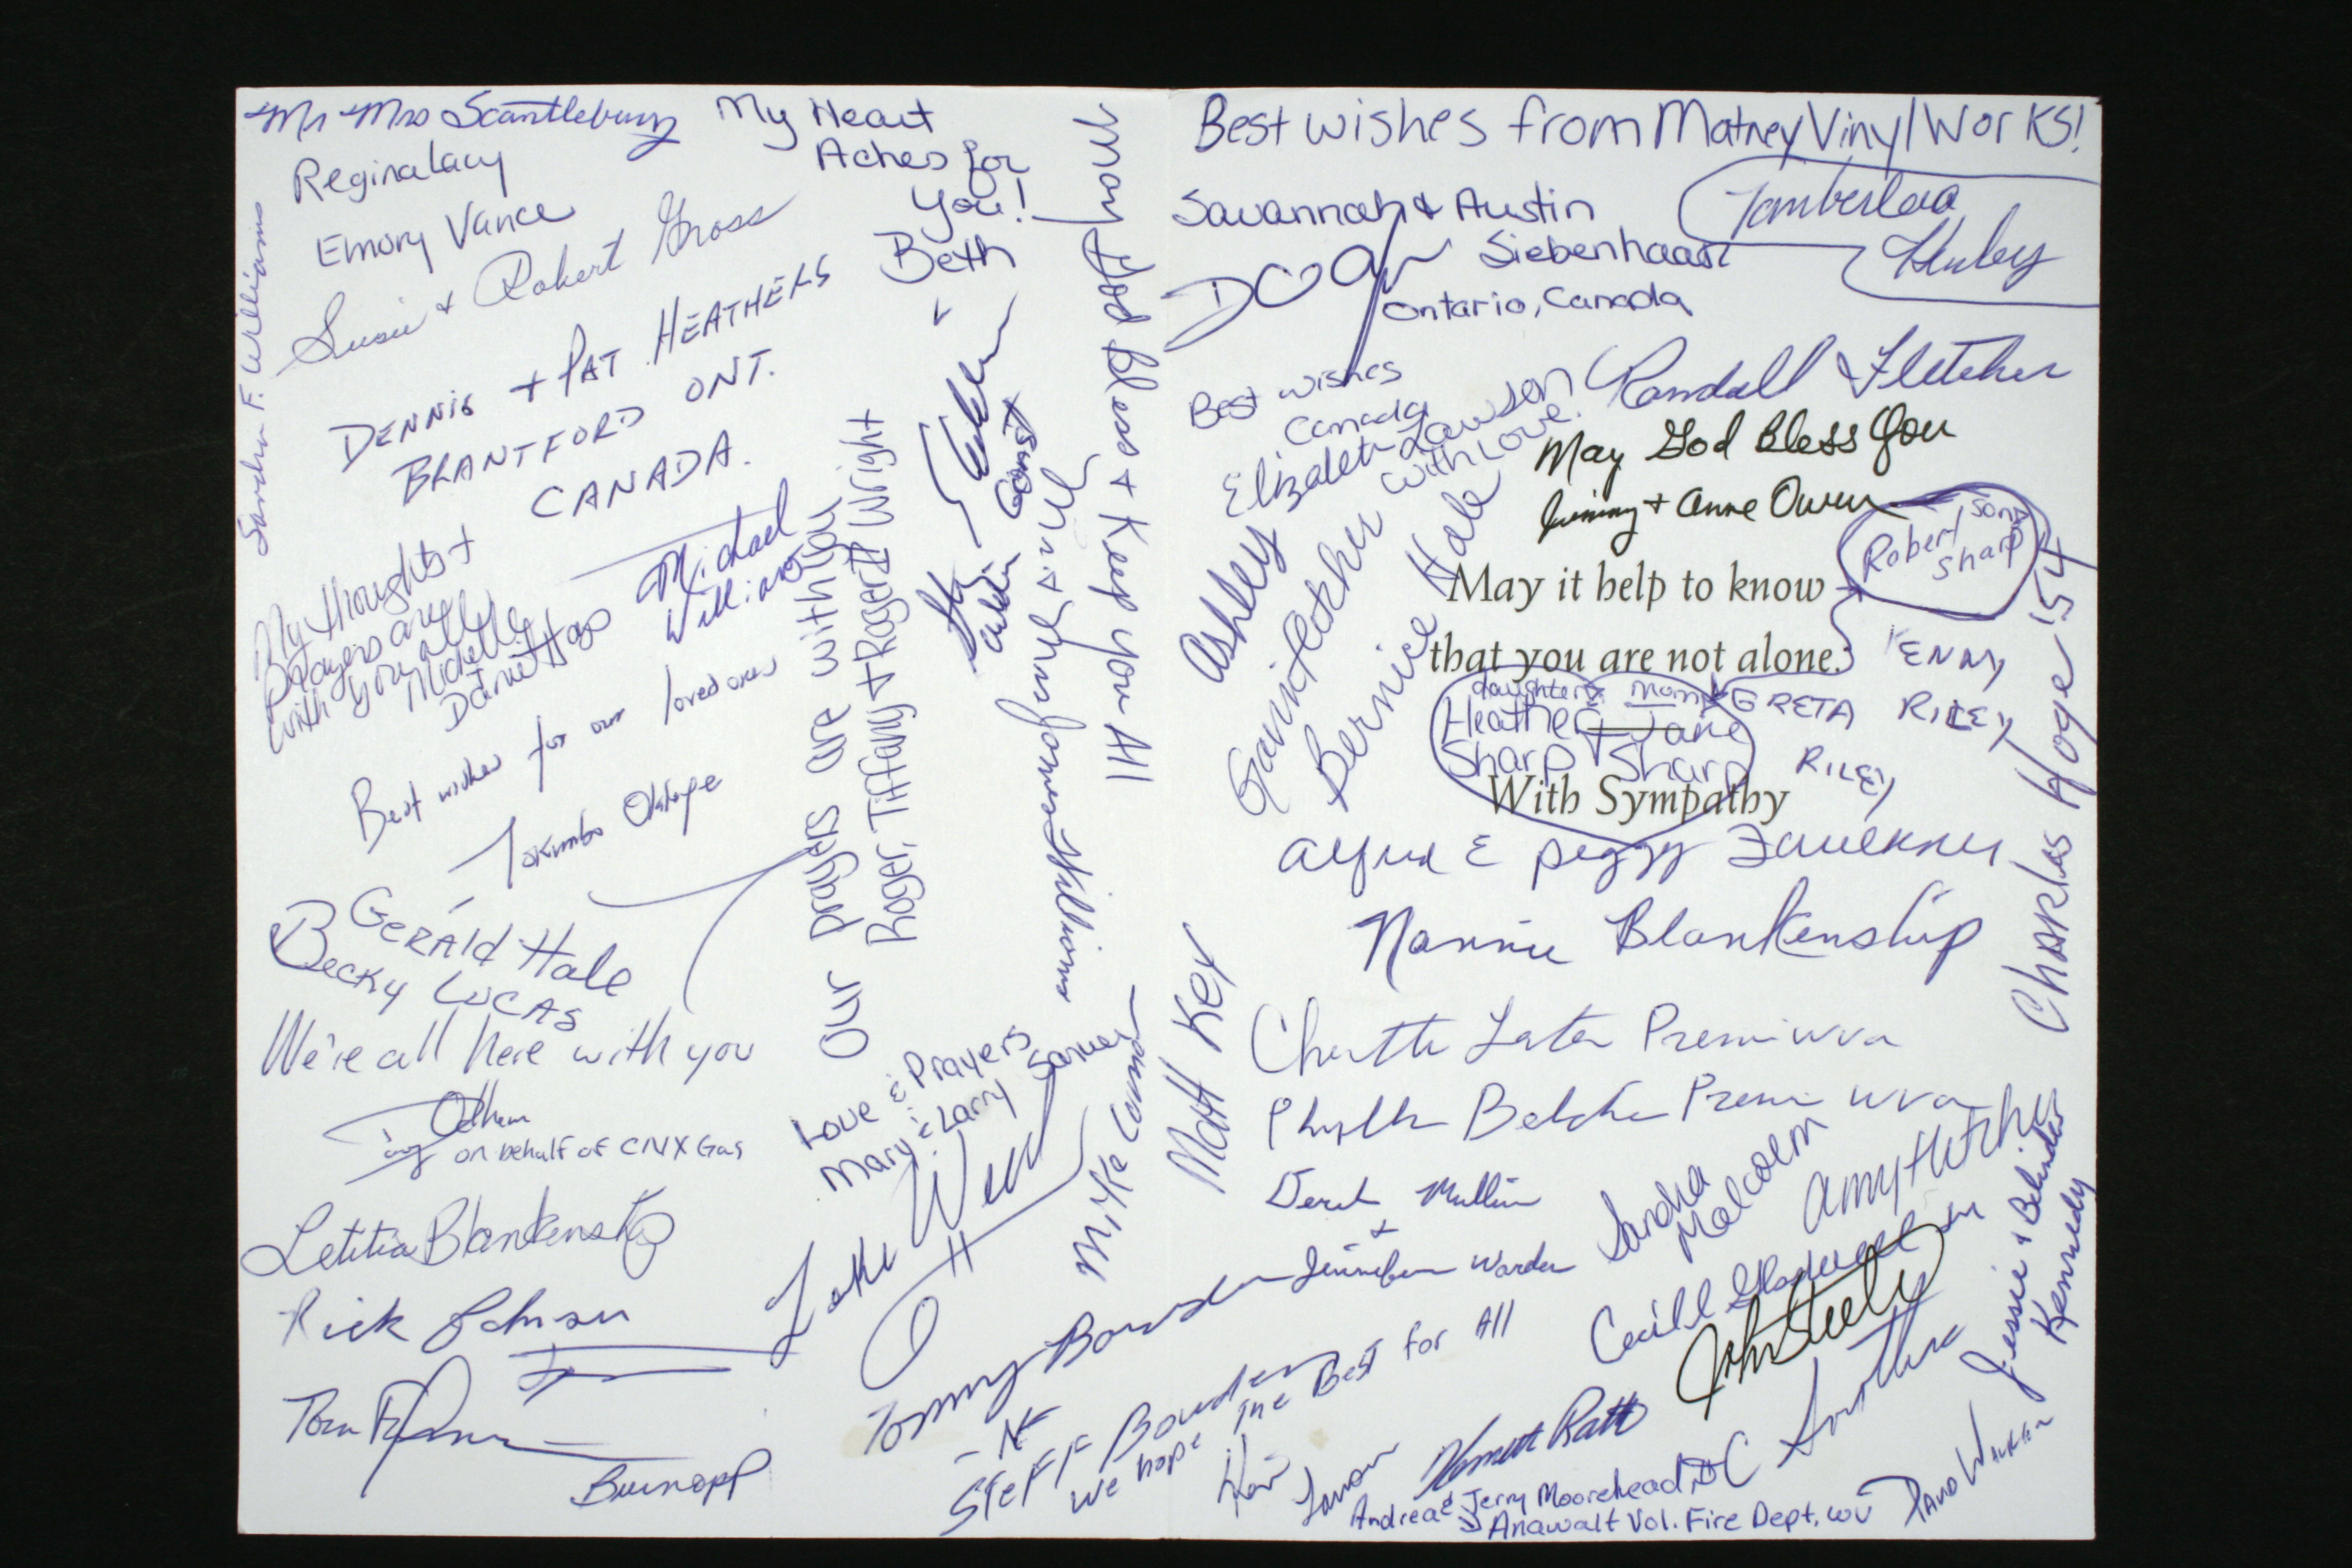 Mr Mrs Scantlebury
Regina Lacy
Emory Vance
Susie & Robert Gross
Sandra F. Williams
DENNIS + PAT HEATHERS
BRANTFORD ONT.
CANADA.
My Heart
Aches for
You!
Beth
My thoughts +
prayers are
with you all
Michelle
Michael
Williams
Best wishes for our loved ones
Our prayers are with you
Roger, Tiffany & Roger II Wright
May God Bless & Keep you All
Gerald Hale
Becky Lucas
We're all here with you
on behalf of CNX Gas
Letitia Blankenship
Rick Johnson
Tom
Love & Prayers
Mary & Larry
Luke
Mike
Tommy Bowden
Steff Bowden
We hope The Best for All
Best wishes from Matney Vinyl Works!
Savannah & Austin
Siebenhaar
Ontario, Canada
Best wishes
Canada
Elizabeth Lawson
with Love.
Randall Fletcher
May God Bless You
Jimmy & Anne Owen
Ashley
Bernice Hale
May it help to know
that you are not alone.
With Sympathy
son
Robert
Sharp
daughter mom
Heather Jane
Sharp + Sharp
KENNY
GRETA RILEY
RILEY
Charles Hoge '54
Peggy Faulkner
Nannie Blankenship
Matt Key
Derek Mullins
&
Jennifer Warden
Sandra
Malcolm
Amy Hatcher
John Steely
Jessie & Belinda
Kennedy
Andrea & Jerry Moorehead
Anawalt Vol. Fire Dept, WV
David